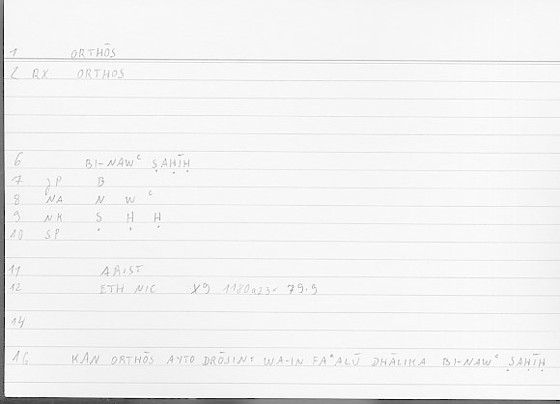 1 ORTHŌS
2 RX ORTHOS
6 BI-NAWᶜ ṢAḤĪḤ
7 JP B
8 NA N W ᶜ
9 NK Ṣ Ḥ Ḥ
10 SP
11 ARIST
12 ETH NIC X9 1180a23- 79.9
14
16 KAN ORTHŌS AYTO DRŌSIN: WA-IN FAᶜALŪ DHĀLIKA BI-NAWᶜ ṢAḤĪḤ